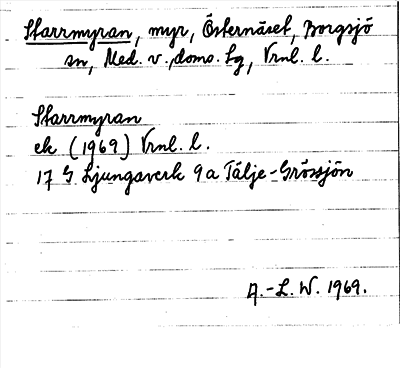 Starrmyran, myr, Östernäset, Borgsjö
sn, Med. v. doms. Lg, Vrnl. l.
Starrmyran
ek (1969) Vrnl. l.
17 G Ljungaverk 9a Tälje-Grössjön
A.-L. W. 1969.